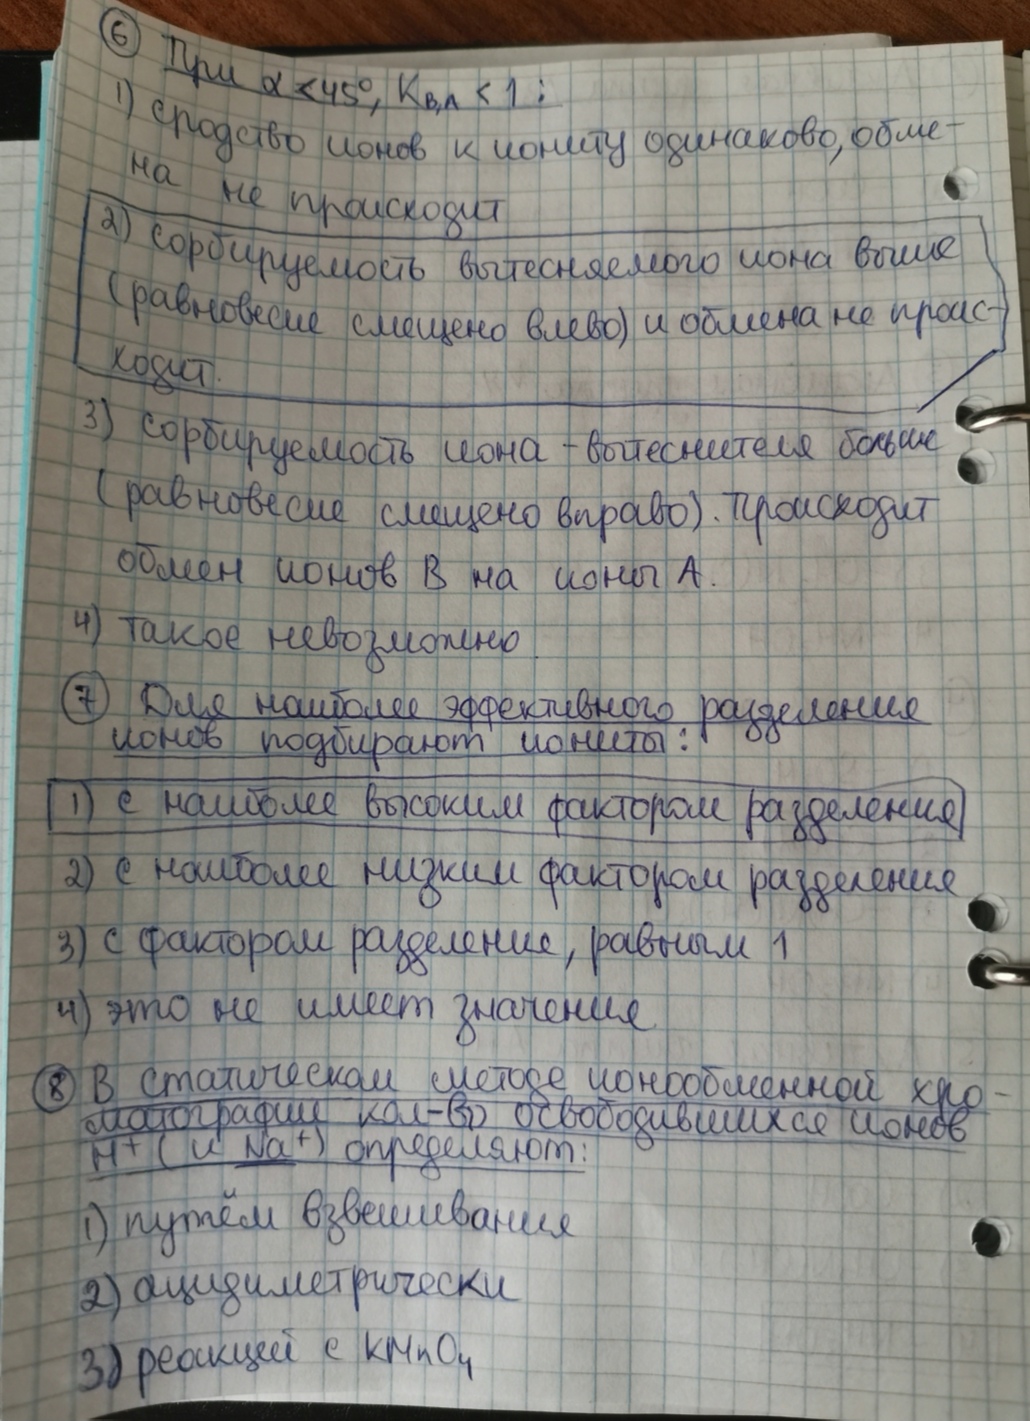 6 При α < 45°, KB,A < 1 :
1) сродство ионов к иониту одинаково, обме-
на не происходит
2) сорбируемость вытесняемого иона выше
(равновесие смещено влево) и обмена не проис-
ходит.
3) сорбируемость иона - вытеснителя больше
(равновесие смещено вправо). Происходит
обмен ионов В на ионы А.
4) такое невозможно
7 Для наиболее эффективного разделения
ионов подбирают иониты:
1) с наиболее высоким фактором разделения
2) с наиболее низким фактором разделения
3) с фактором разделение, равным 1
4) это не имеет значение
8 В статическом методе ионообменной хро-
матографии кол-во освободившихся ионов
H+ ( и Na+) определяют:
1) путём взвешивания
2) ацидиметрически
3) реакцией с KMnO4